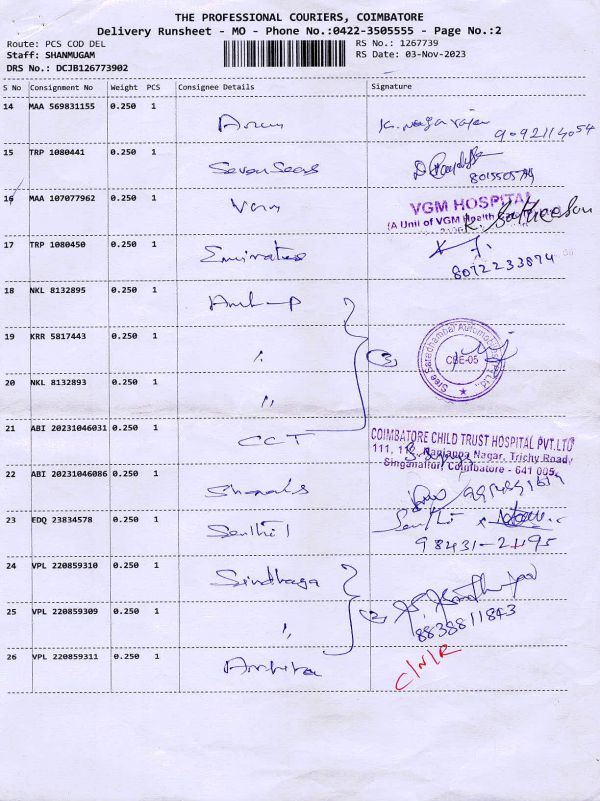 THE PROFESSIONAL COURIERS, COIMBATORE
Delivery Runsheet - MO - Phone No.:0422-3505555 - Page No.:2
Route: PCS COD DEL
RS No.: 1267739
Staff: SHANMUGAM
RS Date: 03-Nov-2023
DRS No.: DCJB126773902
S No Consignment No Weight PCS Consignee Details Signature
14 MAA 569831155 0.250 1 Arun K. Nagarajan
9092114054
15 TRP 1080441 0.250 1 Seven Seas
16 MAA 107077962 0.250 1 Vgm VGM HOSPITAL
(A Unit of VGM Health
17 TRP 1080450 0.250 1 Emirates
8072233874
18 NKL 8132895 0.250 1
19 KRR 5817443 0.250 1 " 3
Sree Saradhambal Automobiles Pvt Ltd.,
CBE-05
20 NKL 8132893 0.250 1 "
21 ABI 20231046031 0.250 1 CCT COIMBATORE CHILD TRUST HOSPITAL PVT.LTD
Nagar, Trichy Road
Singanallur, Coimbatore - 641 005.
22 ABI 20231046086 0.250 1
23 EDQ 23834578 0.250 1 Senthil Senthil
98431-21195
24 VPL 220859310 0.250 1
25 VPL 220859309 0.250 1 " 2
8838811843
26 VPL 220859311 0.250 1
C/N/R